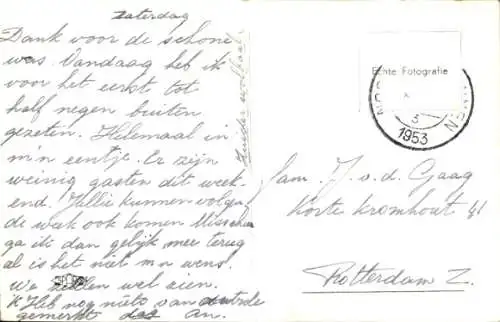 Zaterdag
Dank voor de schone
was. Vandaag heb ik
voor het eerst tot
half negen buiten
gezeten. Helemaal in
m'n eentje. Er zijn
weinig gasten dit week-
end. Jullie kunnen volgen
de week ook komen Misschien
ga ik dan gelijk mee terug
al is het niet m'n wens.
We zullen wel zien.
'k Heb nog niets van
gemerkt das An.
Echte Fotografie
3
1953
Fam. J. v. d. Gaag
Korte Kromhout 41
Rotterdam Z.